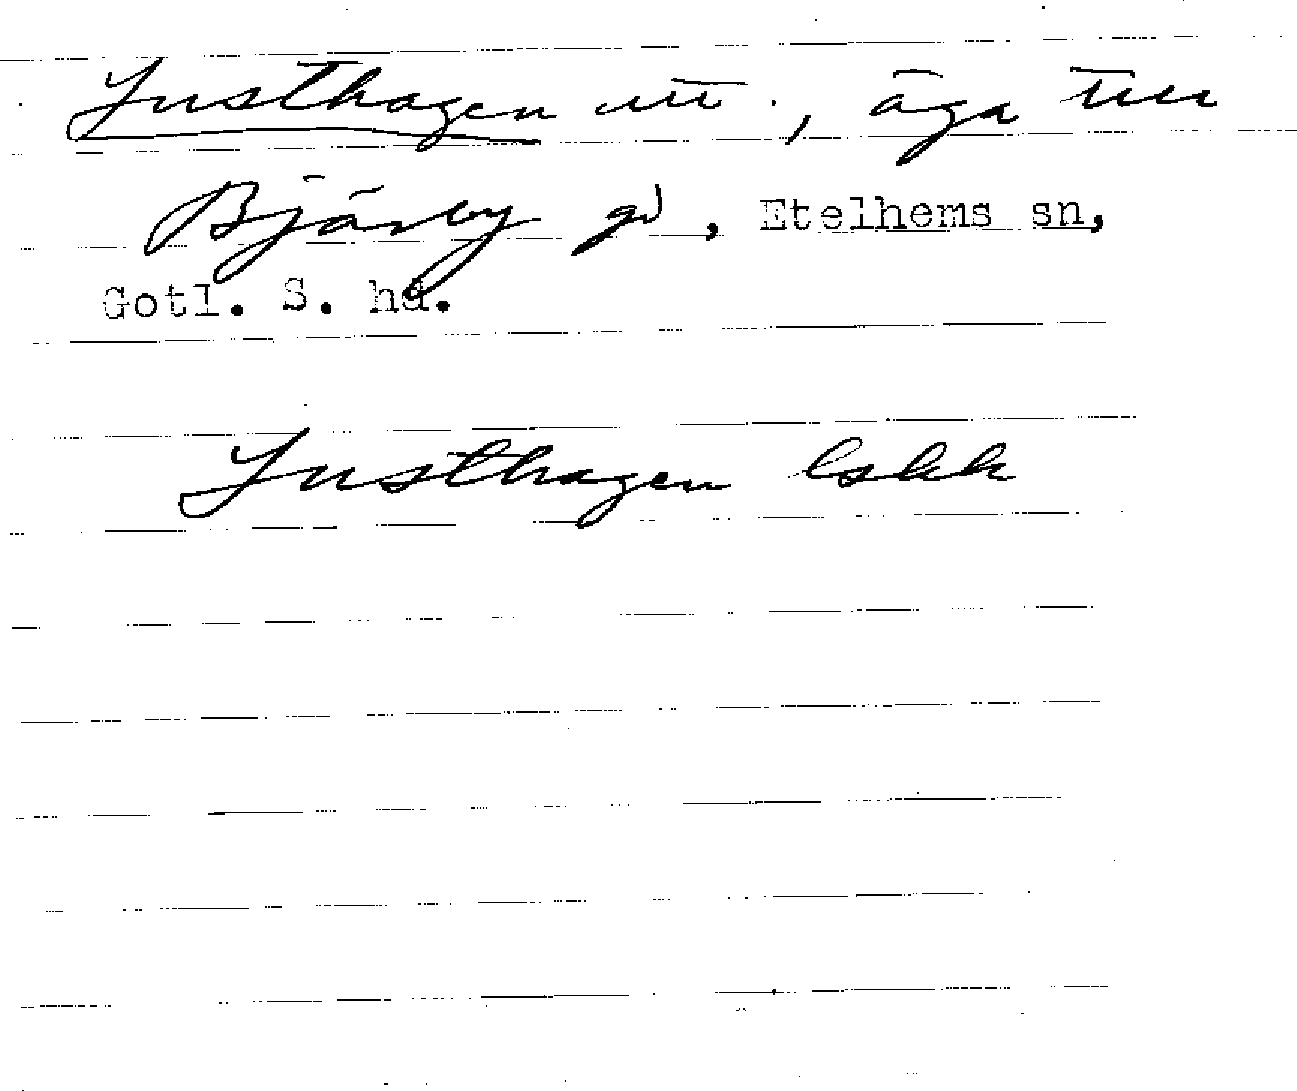 Justhagen utt., äga till
Bjärby gd, Etelhems sn,
Gotl. S. hd.
Justhagen lskk